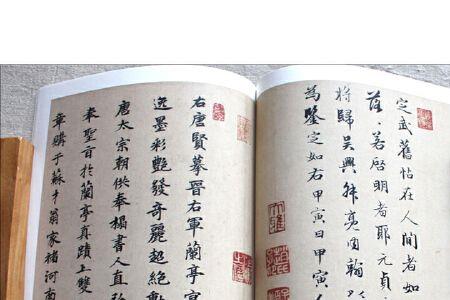 定武舊帖在人間者如
落〻若啓明者耶元貞
將歸吳興叔亮内翰
為鑒定如右甲寅日甲寅
右唐賢摹晉右軍蘭亭宴
逸墨彩艷發奇麗超絕動
唐太宗朝供奉榻書人直弘
奉聖旨於蘭亭真蹟上雙
章購于蘇才翁家褚河南